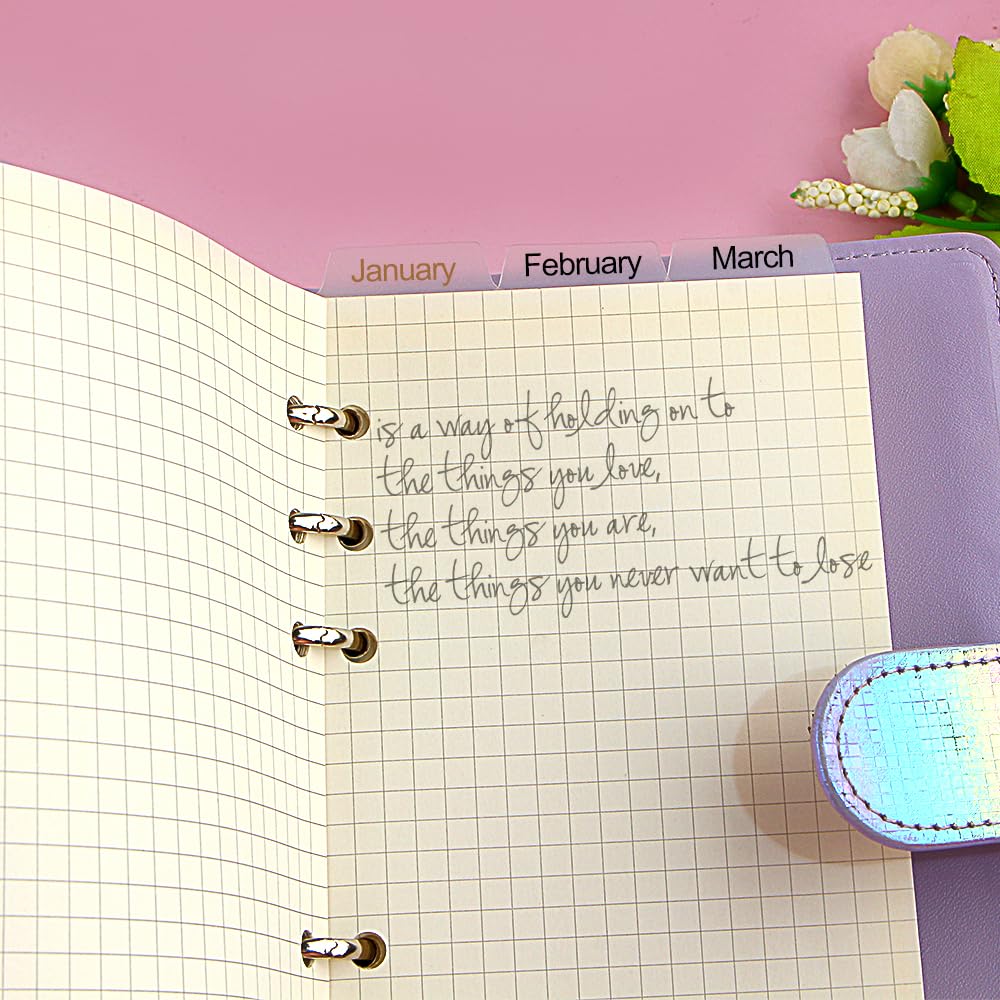 January February March
is a way of holding on to
the things you love,
the things you are,
the things you never want to lose